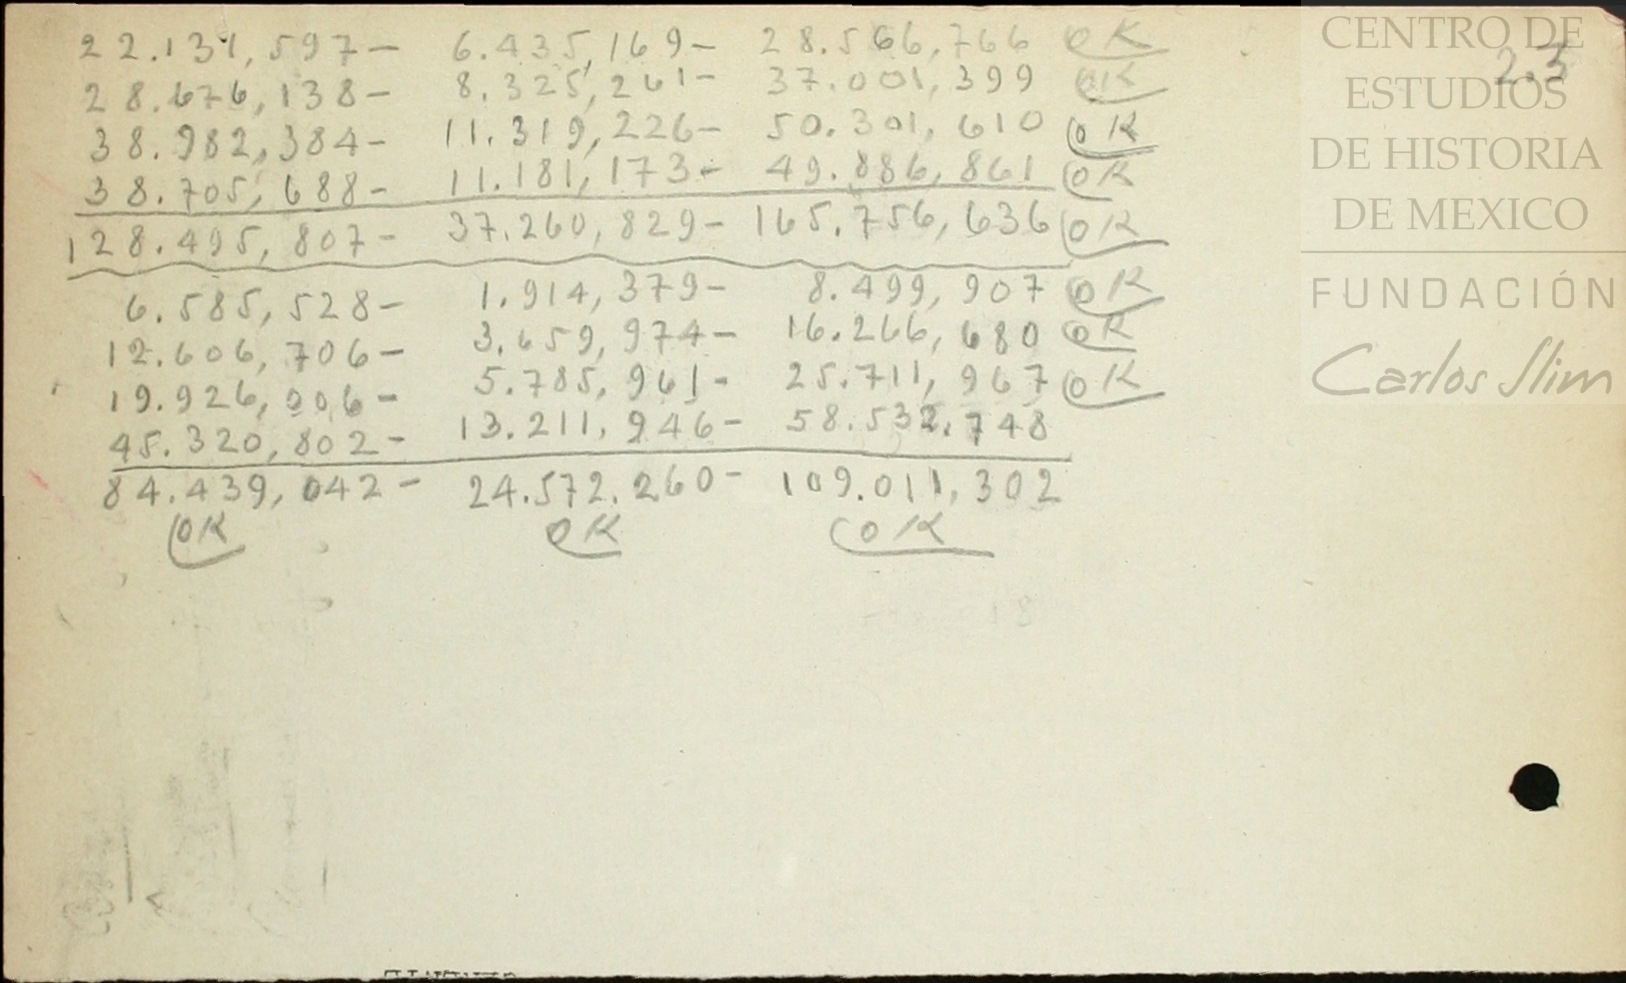 22.131,597- 6.435,169- 28.566,766 OK
28.676,138- 8.325,261- 37.001,399 OK
38.982,384- 11.319,226- 50.301,610 OK
38.705,688- 11.181,173- 49.886,861 OK
128.495,807- 37.260,829- 165.756,636 OK
6.585,528- 1.914,379- 8.499,907 OK
12.606,706- 3.659,974- 16.266,680 OK
19.926,006- 5.785,961- 25.711,967 OK
45.320,802- 13.211,946- 58.532,748
84.439,042- 24.572.260- 109.011,302
OK OK OK
2.3
CENTRO DE
ESTUDIOS
DE HISTORIA
DE MEXICO
FUNDACIÓN
Carlos Slim